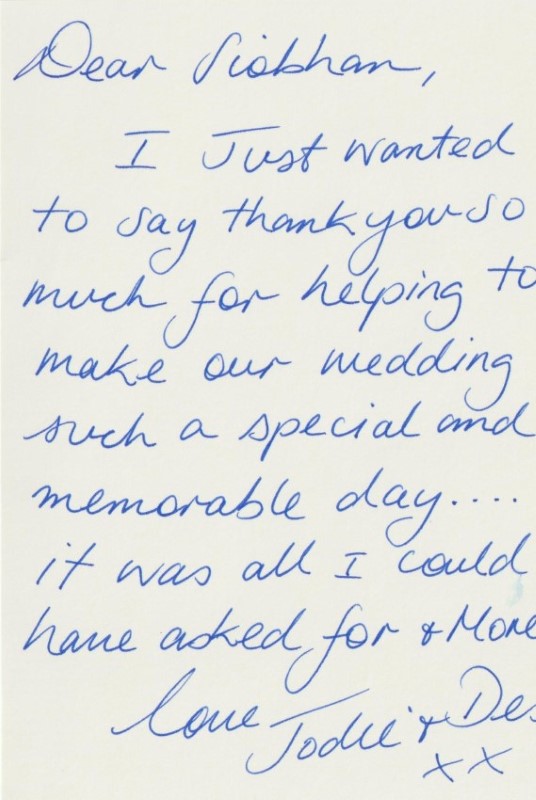 Dear Siobhan,
I Just wanted
to say thank you so
much for helping to
make our wedding
such a special and
memorable day....
it was all I could
have asked for + More
love Jodie + Des
xx